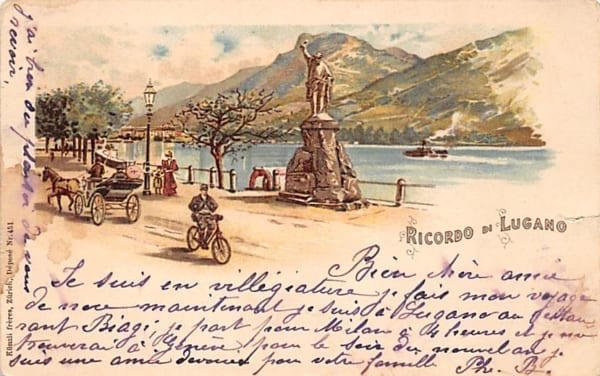 j'ai bien du plaisir de vous
revoir,
RICORDO DI LUGANO
Künzli frères, Zürich, Déposé Nr. 451
Bien chère amie
Je suis en villégiature je fais mon voyage
de noce maintenant je suis à Lugano au restau
rant Biagi, je part pour Milan à 4 heures et je me
trouverai à Genève pour le soir du nouvel an je
suis une amie devouée pour votre famille Ph. B.